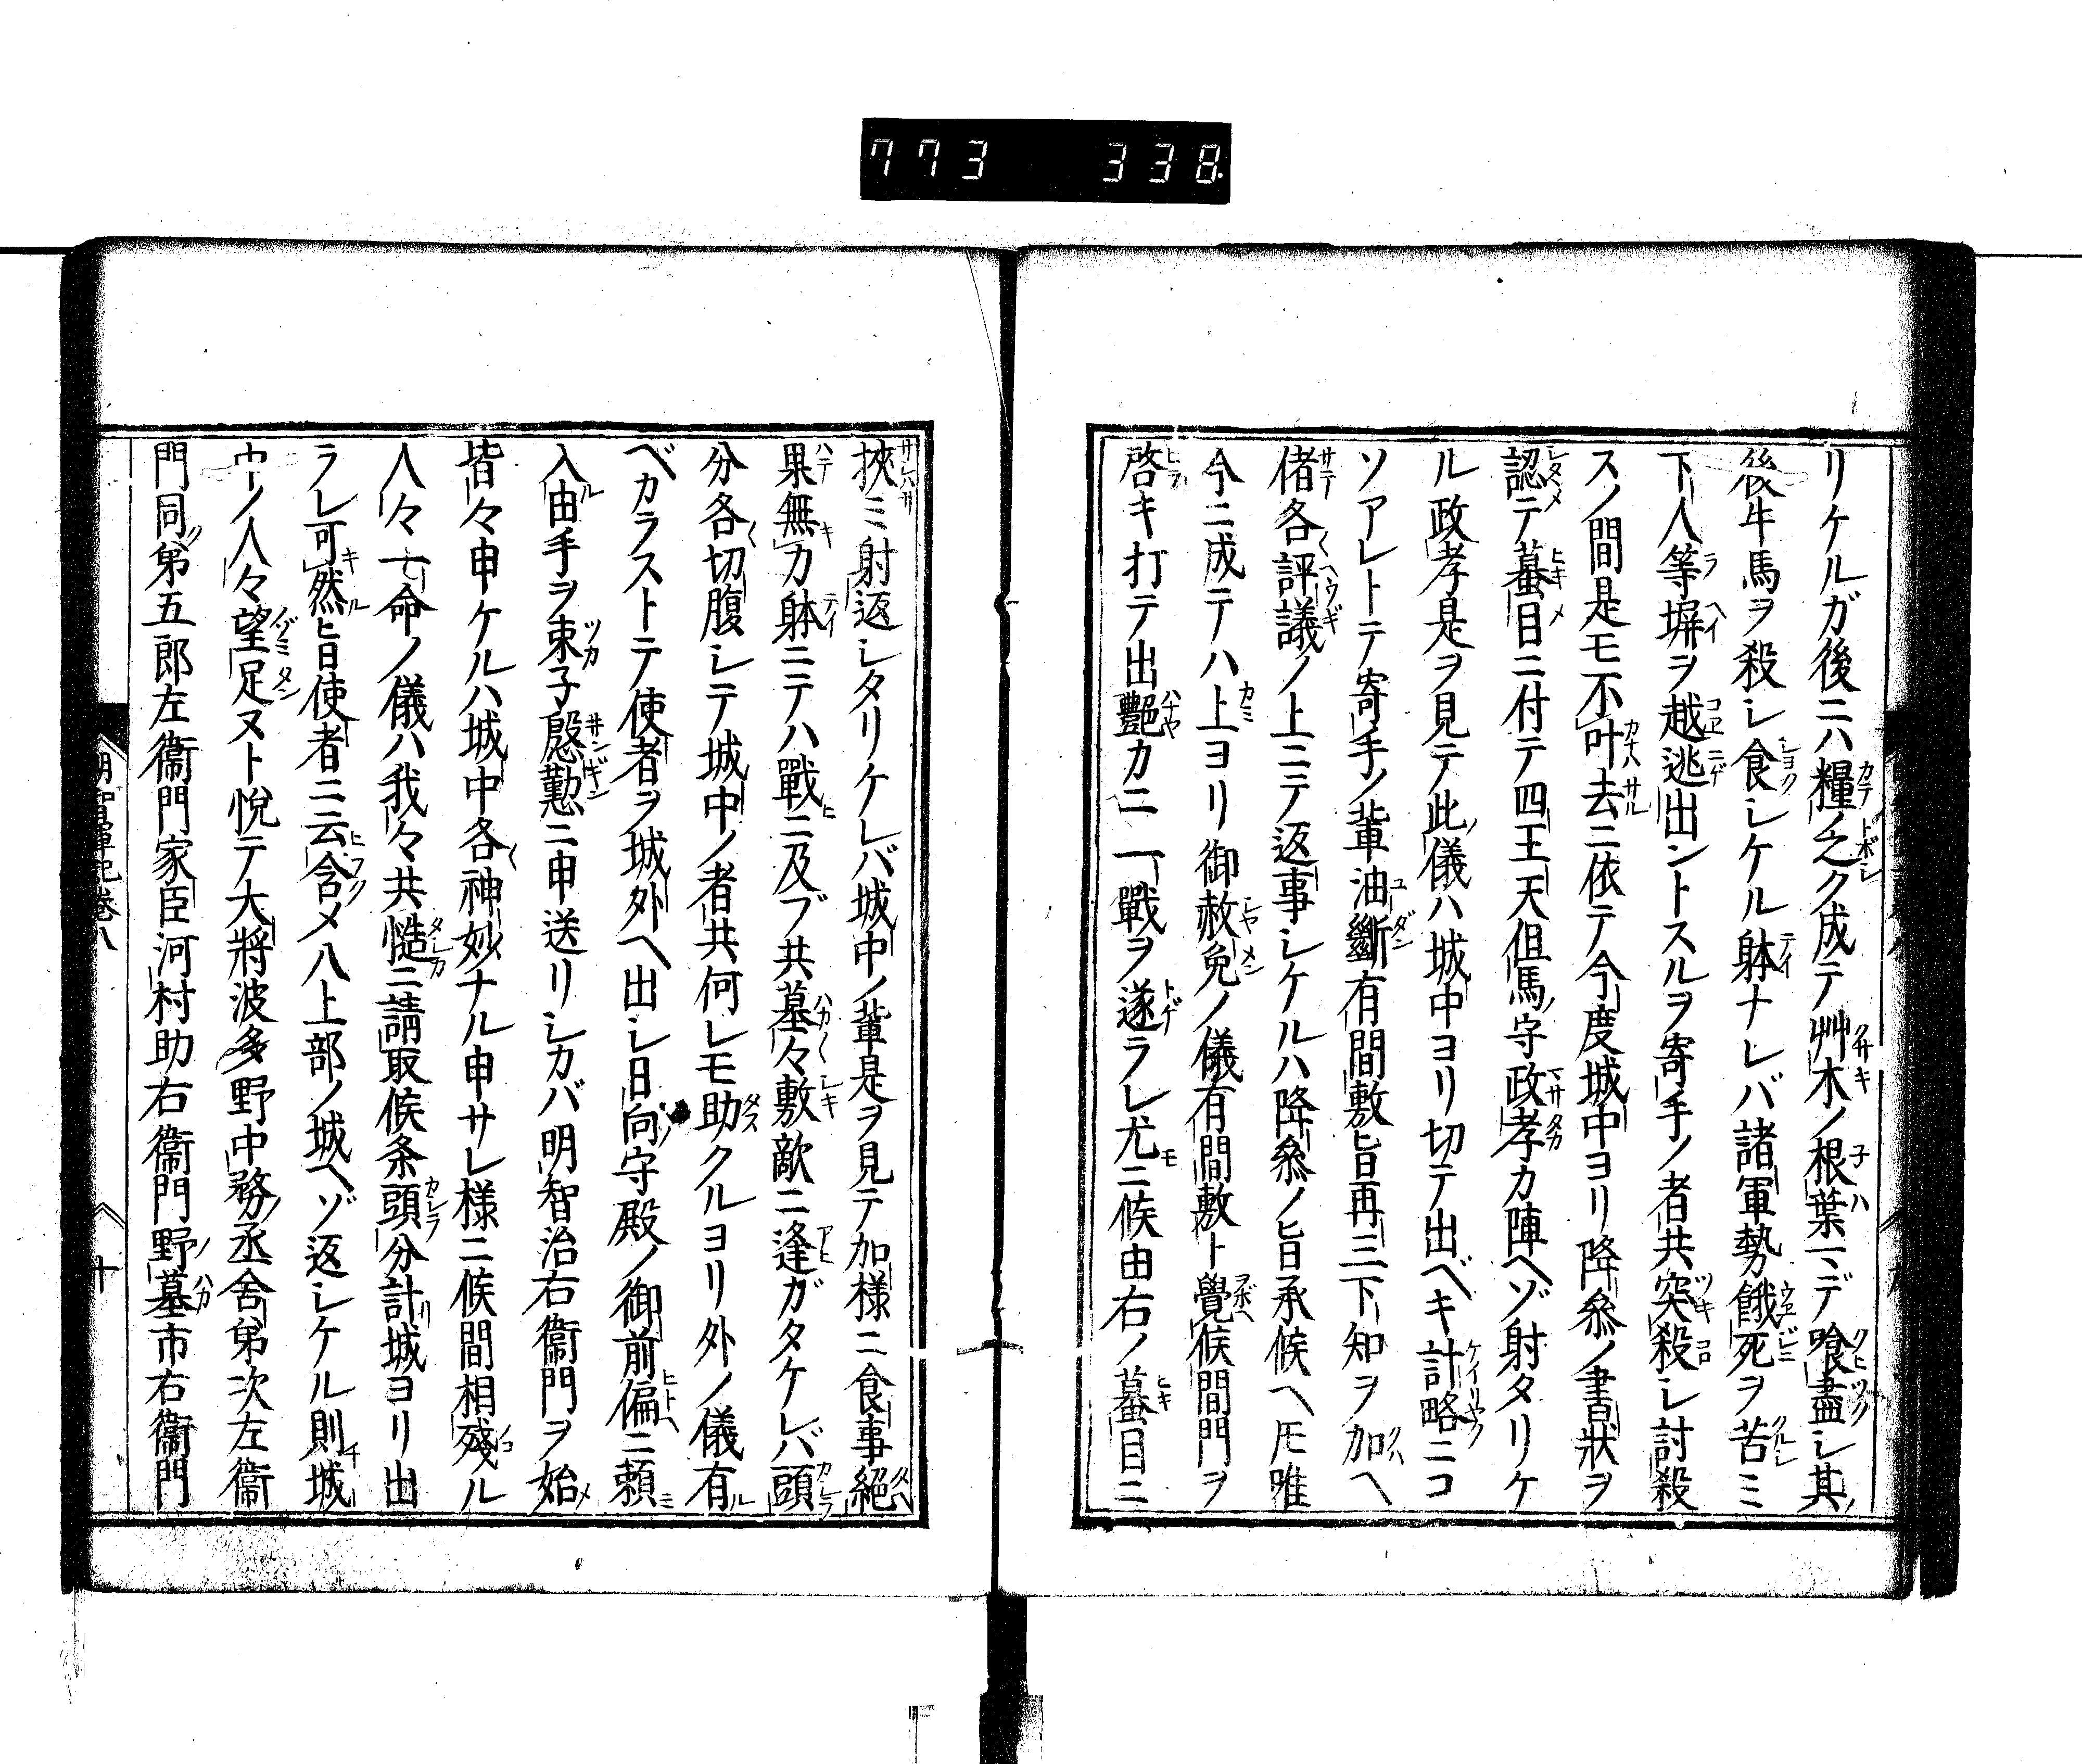 773 338
リケルガ後ニハ糧ノ乏ク成テ艸木ノ根葉マデ喰盡シ其
後牛馬ヲ殺シ食シケル躰ナレバ諸軍勢餓死ヲ苦ミ
下人等塀ヲ越逃出ントスルヲ寄手ノ者共突殺シ討殺
スノ間是モ不叶去ニ依テ今度城中ヨリ降叅ノ書狀ヲ
認テ蟇目ニ付テ四王天但馬守政孝カ陣ヘゾ射タリケ
ル政孝是ヲ見テ此儀ハ城中ヨリ切テ出ベキ計略ニコ
ソアレトテ寄手ノ軰油斷有間敷旨再三下知ヲ加ヘ
偖各評議ノ上ニテ返事シケルハ降叅ノ旨承候ヘ𪜈唯
今ニ成テハ上ヨリ御赦免ノ儀有間敷ト覺候間門ヲ
啓キ打テ出艷カニ一戰ヲ遂ラレ尤ニ候由右ノ蟇目ニ
挾ミ射返シタリケレバ城中ノ軰是ヲ見テ加樣ニ食事絕
果無力躰ニテハ戰ニ及ブ共墓々敷敵ニ逢ガタケレバ頭
分各切腹シテ城中ノ者共何レモ助クルヨリ外ノ儀有
ベカラストテ使者ヲ城外ヘ出シ日向守殿ノ御前偏ニ賴
入由手ヲ束子慇懃ニ申送リシカバ明智治右衞門ヲ始
皆々申ケルハ城中各神妙ナル申サレ樣ニ候間相殘ル
人々ノ命ノ儀ハ我々共慥ニ請取候条頭分計城ヨリ出
ラレ可然旨使者ニ云含メ八上部ノ城ヘゾ返シケル則城
中ノ人々望足ヌト悅テ大將波多野中務丞舍弟次左衞
門同弟五郎左衞門家臣河村助右衞門野墓市右衞門
明智軍記卷八
十